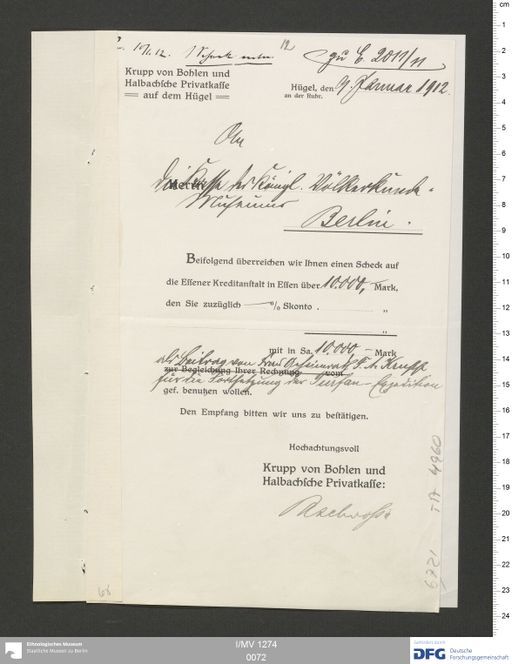 10/1. 12. 1 Scheck
12
zu E. 2011/11
Krupp von Bohlen und
Halbachsche Privatkasse
auf dem Hügel
Hügel, den 9. Januar 1912.
an der Ruhr.
An
die Kasse des Königl. Völkerkunde-
Museums
Berlin.
Beifolgend überreichen wir Ihnen einen Scheck auf
die Essener Kreditanstalt in Essen über 10.000,- Mark,
den Sie zuzüglich — % Skonto . "
"
mit in Sa. 10.000 - Mark
als Beitrag von Frau Geheimrat F. A. Krupp
zur Begleichung Ihrer Rechnung vom
für die Fortsetzung der Turfan-Expedition
gef. benutzen wollen.
Den Empfang bitten wir uns zu bestätigen.
Hochachtungsvoll
Krupp von Bohlen und
Halbachsche Privatkasse:
TA 4960
68
Ethnologisches Museum
Staatliche Museen zu Berlin
I/MV 1274
0072
Gefördert durch
DFG Deutsche
Forschungsgemeinschaft
cm
1
2
3
4
5
6
7
8
9
10
11
12
13
14
15
16
17
18
19
20
21
22
23
24